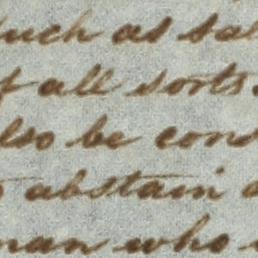 such as sal
of all sorts.
also be cons
to abstain a
man who w